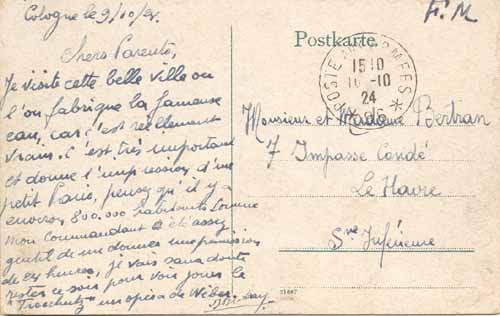 Cologne le 9/10/24.
F.M
Postkarte.
POSTE AUX ARMEES
1510
10-10
24
Chers Parents,
Je visite cette belle ville ou
l'on fabrique la fameuse
eau, car c'est reellement
vrai. C'est très important
et donne l'impression d'un
petit Paris, pensez qu'il y a
environ 800.000 habitants. Comme
mon Commandant a été assez
gentil de me donner une permission
de 24 heures, je vais sans doute
rester ce soir pour voir jouer le
"Freschutz" un opéra de Weber.
Monsieur et Madame Bertran
7 Impasse Condé
Le Havre
Sne Inférieure